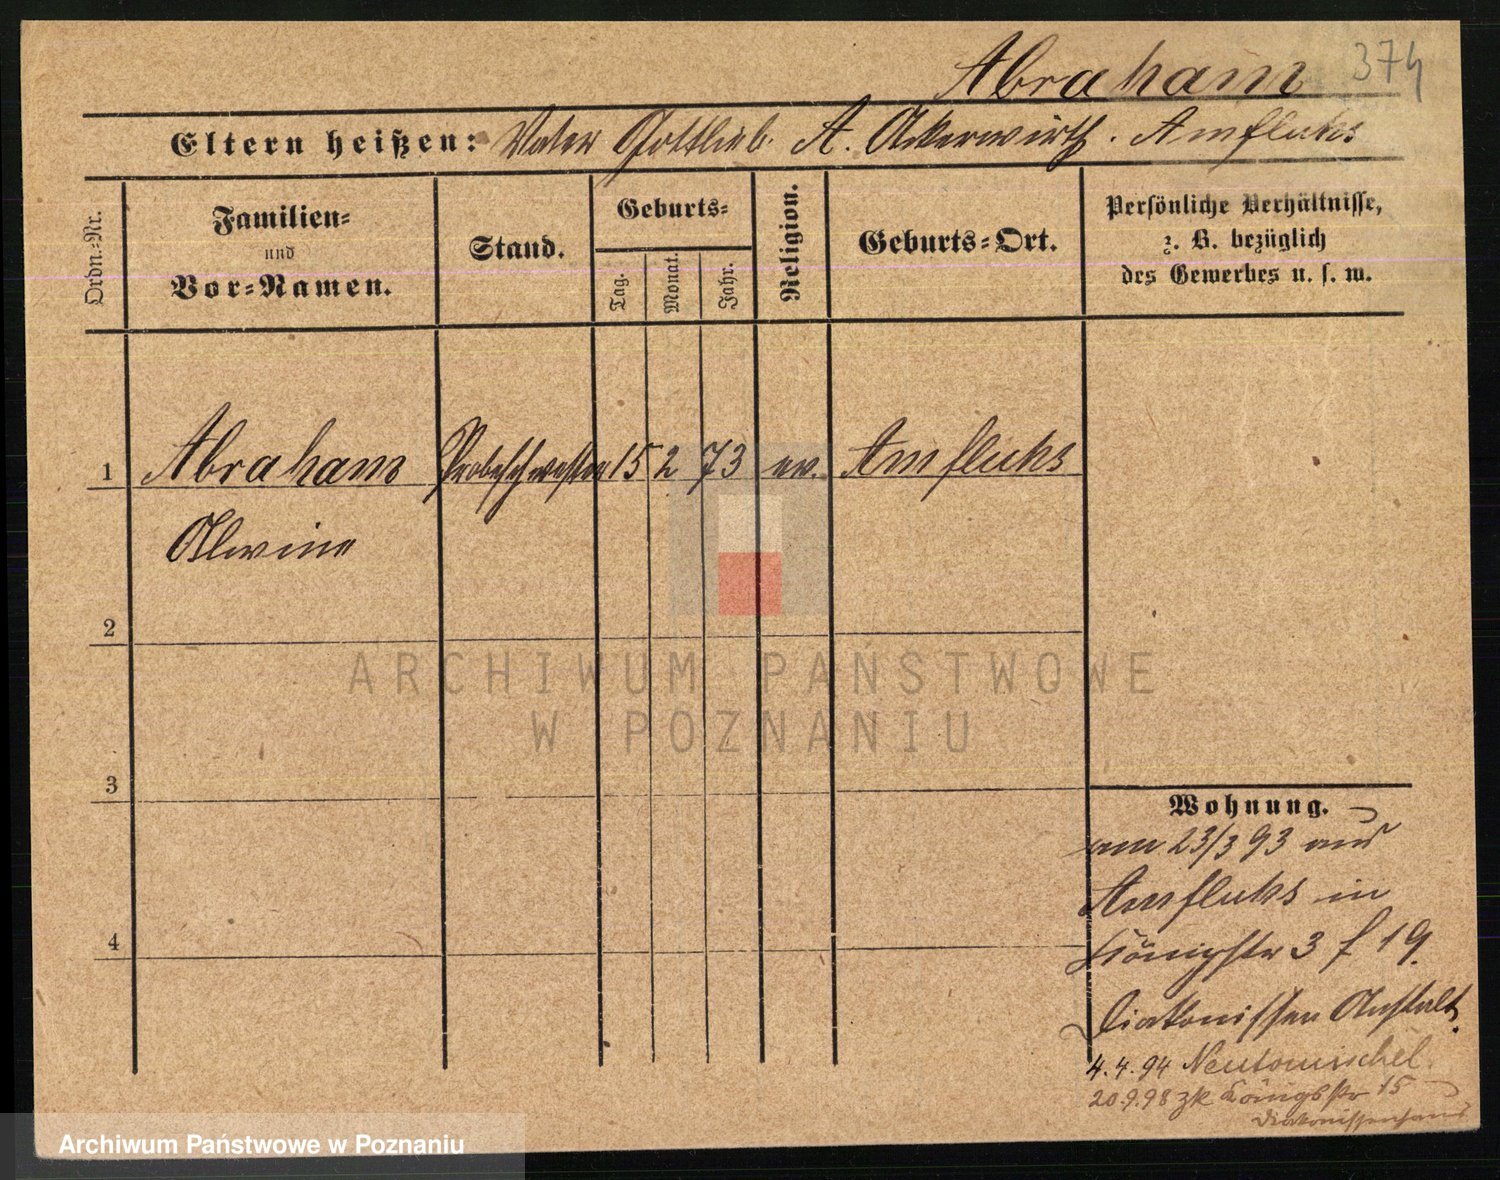 Abraham 374
Eltern heißen: Vater Gottlieb A. Ackerwirth. Amfluhs
Ordn.-Nr.
Familien-
und
Vor-Namen.
Stand.
Geburts-
Tag.
Monat.
Jahr.
Religion.
Geburts-Ort.
Persönliche Verhältnisse,
z. B. bezüglich
des Gewerbes u. s. w.
1 Abraham Probeschwester 15 2 73 ev. Amfluhs
Alwine
2
3
4
Wohnung.
am 23/3 93 aus
Amfluhs in
Königstr 3 f 19.
Diakonissen Anstalt.
4.4.94 Neutomischel.
20.9.98 zk Königsstr 15
Diakonissenhaus
ARCHIWUM PAŃSTWOWE
W POZNANIU
Archiwum Państwowe w Poznaniu